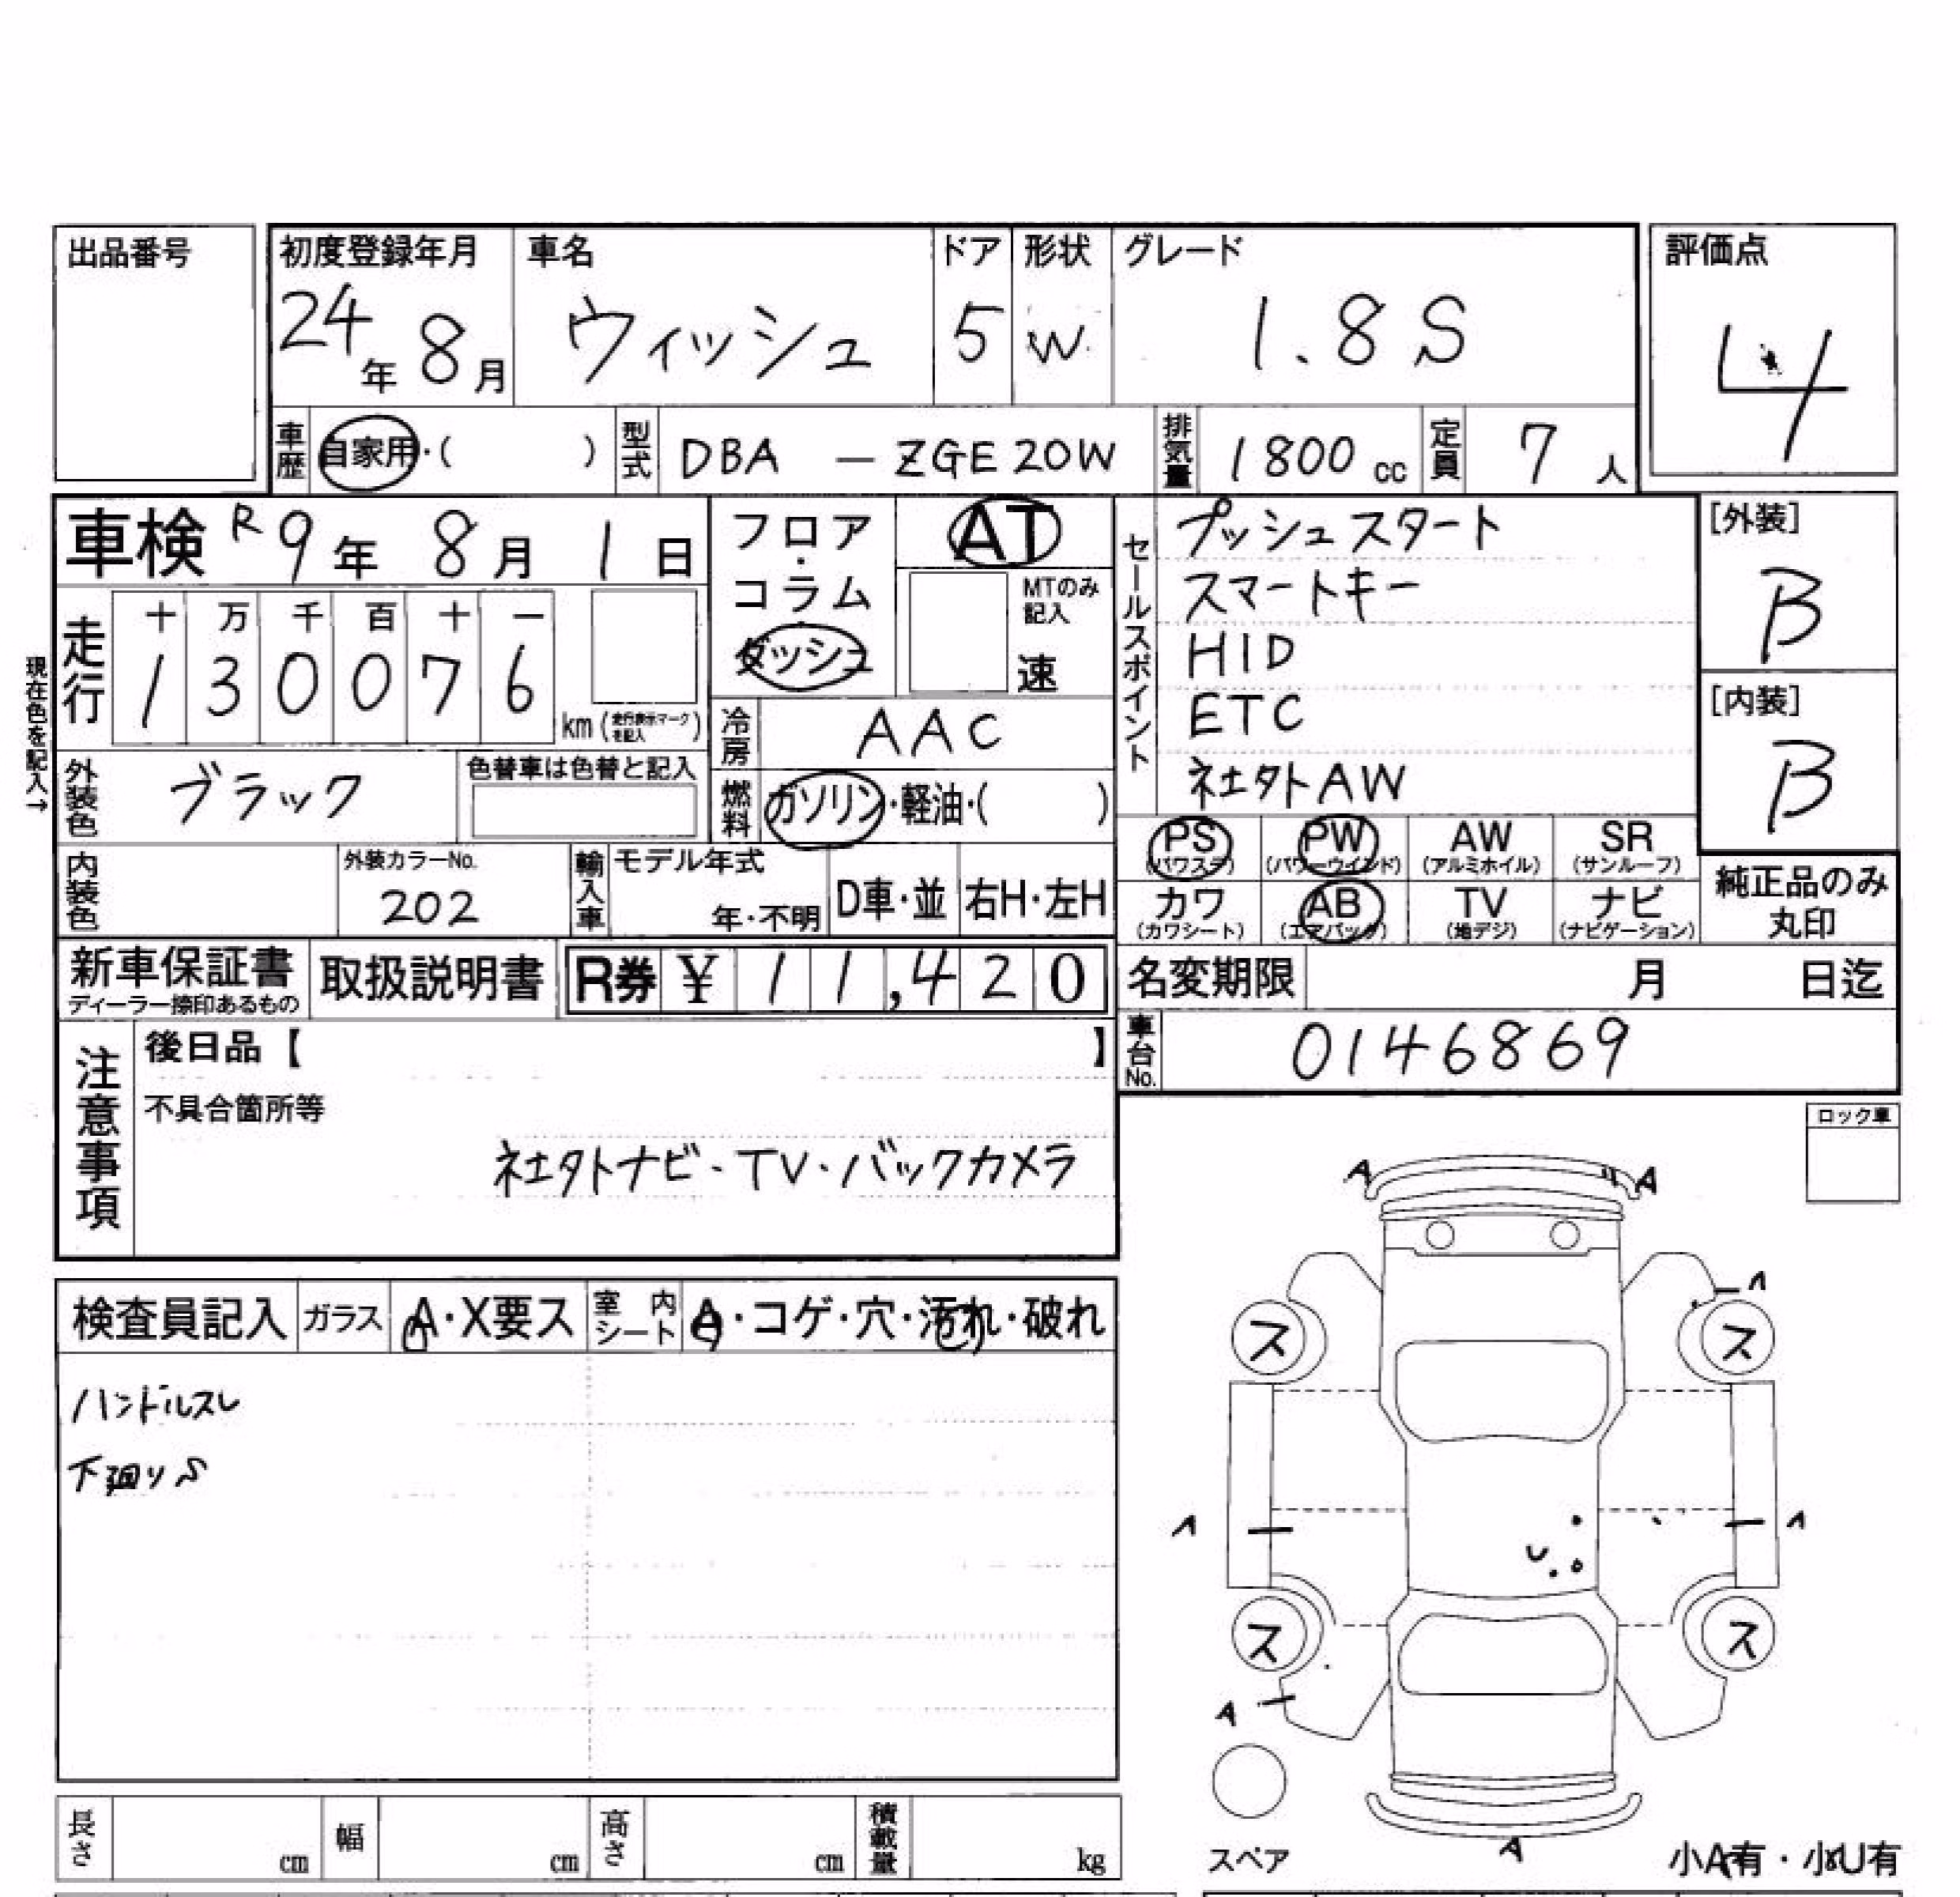 出品番号
初度登録年月
24年 8月
車名
ウィッシュ
ドア
5
形状
W
グレード
1.8 S
評価点
4
車歴
自家用・( )
型式
DBA － ZGE 20W
排気量
1800 cc
定員
7 人
車検 R9年 8月 1日
フロア
・
コラム
・
ダッシュ
AT
MTのみ
記入
速
セールスポイント
プッシュスタート
スマートキー
HID
ETC
社外AW
[外装]
B
[内装]
B
現在色を記入→
走行
十 万 千 百 十 一
1 3 0 0 7 6
km (走行表示マークを記入)
冷房
AAC
外装色
ブラック
色替車は色替と記入
燃料
ガソリン・軽油・( )
PS
(パワステ)
PW
(パワーウインド)
AW
(アルミホイル)
SR
(サンルーフ)
カワ
(カワシート)
AB
(エアバッグ)
TV
(地デジ)
ナビ
(ナビゲーション)
純正品のみ
丸印
内装色
外装カラーNo.
202
輸入車
モデル年式
年・不明
D車・並
右H・左H
新車保証書
ディーラー捺印あるもの
取扱説明書
R券 ¥ 11,420
名変期限
月 日迄
車台No.
0146869
注意事項
後日品【 】
不具合箇所等
社外ナビ・TV・バックカメラ
ロック車
検査員記入
ガラス
A・X要ス
室内シート
A・コゲ・穴・汚れ・破れ
ハンドルスレ
下廻りS
A
A
A
ス
ス
A
A
U
ス
ス
A
A
スペア
小A有・小U有
長さ
cm
幅
cm
高さ
cm
積載量
kg